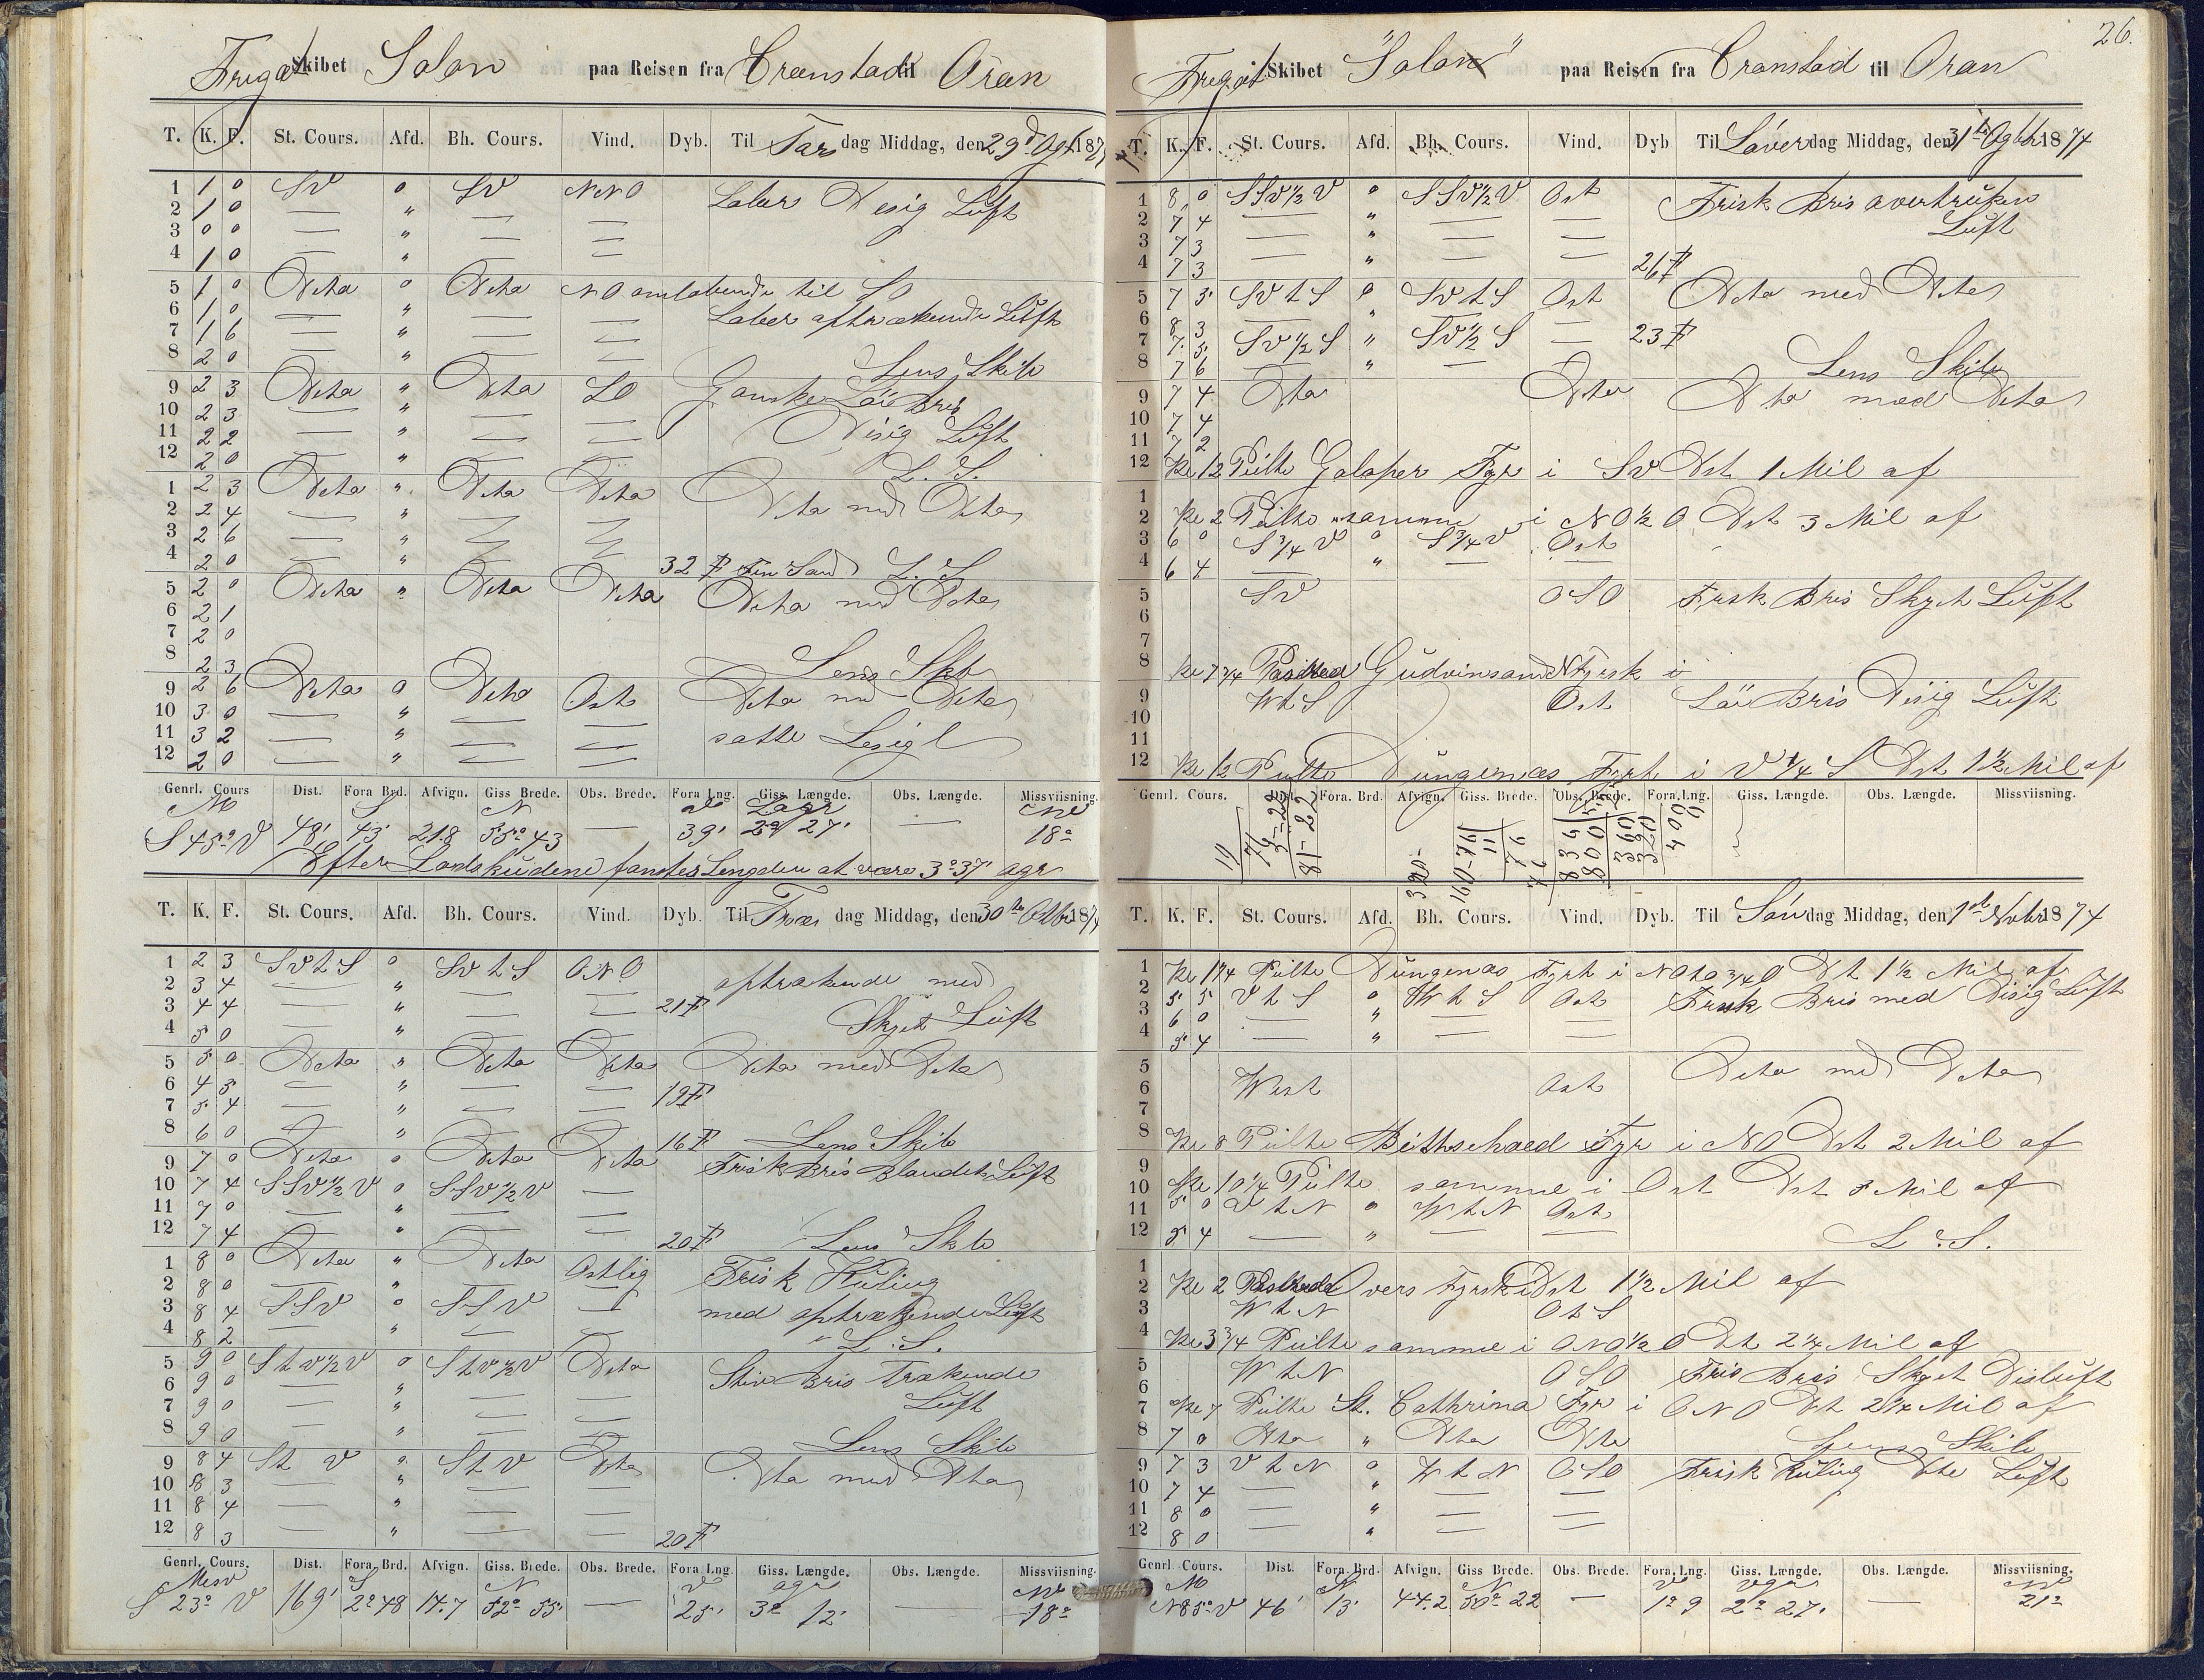 Fregat Skibet Solon paa Reisen fra Cronstad til Oran
T. K. F. St. Cours. Afd. Bh. Cours. Vind. Dyb. Til Tors dag Middag, den 29d 187
1 1 0 SV 0 SV NNO Laber Disig Luft
2 1 0 — " — —
3 0 0 — " — —
4 1 0 — " — —
5 1 0 Dito 0 Dito NO omløbende til SO
6 1 0 — " — — Laber optrækende Luft
7 1 6 — " — —
8 2 0 — " — — Lens Skib
9 2 3 Dito " Dito SO Ganske Løi Bris
10 2 3 — " — —
11 2 2 — " — — Disig Luft
12 2 0 — " — — L. S.
1 2 3 Dito " Dito Dito Dito med Dito
2 2 4 — " — —
3 2 6 — " — —
4 2 0 — " — — 32 F Fin Sand L. S
5 2 0 Dito " Dito Dito Dito med Dito
6 2 1
7 2 0
8 2 3 Lens Skib
9 2 6 Dito 0 Dito Ost Dito md Dito
10 3 0 — " — —
11 3 2 — " — — satte Lesigl
12 2 0 — " — —
Genrl. Cours Dist. Fora Brd. Afvign. Giss Brede. Obs. Brede. Fora Lng. Giss. Længde. Obs. Længde. Missviisning.
S 45° V 48' 43' 21.8 55° 43 — 39' 2° 27' — 18°
Efter Landskudene fantes Lengden at være 3° 37' ogr
T. K. F. St. Cours. Afd. Bh. Cours. Vind. Dyb. Til Fre dag Middag, den 30te Octbr 187
1 2 3 SVtS 0 SVtS ONO optrækende med
2 3 4 — " — —
3 4 4 — " — — 21 F
4 5 0 — " — — Skyet Luft
5 5 0 Dito " Dito Dito Dito med Dito
6 4 5 — " — —
7 5 4 — " — — 19 F
8 6 0 — " — — 16 F Lens Skib
9 7 0 Dito 0 Dito Dito Frisk Bris Blandet Luft
10 7 4 SSV½V 0 SSV½V —
11 7 0 — " — —
12 7 4 — " — — 20 F Lens Skib
1 8 0 Dito " Dito Ostlig Frisk Kuling
2 8 0 — " — —
3 8 4 SSV 0 SSV — med optrækende Luft
4 8 2 — " — — L. S.
5 9 0 StV½V 0 StV½V Dito Stiv Bris Trækende
6 9 0 — " — —
7 9 0 — " — — Luft
8 9 0 — " — — Lens Skib
9 8 4 St V 0 St V Dito Dto med Dto
10 8 3 — " — —
11 8 4 — " — —
12 8 3 — " — — 20 F
Genrl. Cours. Dist. Fora Brd. Afvign. Giss Brede. Obs. Brede. Fora Lng. Giss. Længde. Obs. Længde. Missviisning.
S 23° V 169' 2° 48 14.7 52° 55' — 25' 3° 12' — 18°
26.
Fregat Skibet "Solon" paa Reisen fra Cronstad til Oran
T. K. F. St. Cours. Afd. Bh. Cours. Vind. Dyb Til Løver dag Middag, den 31te 1874
1 8 0 SSV½V 0 SSV½V Ost Frisk Bris overtruken
2 7 4 — " — — Luft
3 7 3 — " — —
4 7 3 — " — — 26 F
5 7 3 SVtS 0 SVtS Ost Dito med Dito
6 8 3 — "
7 7 5 SV½S " SV½S — 23 F
8 7 6 — " — Lens Skib
9 7 4 Dto Dito Dto med Dito
10 7 4
11 7 2
12 Kl 12 Peilte Galoper Fyr i SV Dst 1 Mil af
1
2 Kl 2 Peilte samme i NO½O Dst 3 Mil af
3 6 0 S¾V 0 S¾V Ost
4 6 4 — " — —
5 SV OSO Frsk Bris Skyet Luft
6
7
8 Kl 7¾ Passerede Gudvinsand NFyrsk i
9 WtS Ost Løi Bris Disig Luft
10
11
12 Kl 12 Peilte Dungenæs Fyrt i V¼S Dst 1½ Mil af
Genrl. Cours. Dist. Fora. Brd. Afvign. Giss. Brede. Obs. Brede. Fora. Lng. Giss. Længde. Obs. Længde. Missviisning.
T. K. F. St. Cours. Afd. Bh. Cours. Vind. Dyb. Til Søn dag Middag, den 1st Novbr 1874
1 Peilte Dungenæs Fyrt i Dt 1½ Mil af
2 5 5 VtS 0 WtS Ost Frisk Bris med Disig Luft
3 6 0 — " — —
4 5 4 — " — —
5 Dito med Dito
6 West Ost
7
8 Kl 8 Peilte Fyr i NO Dst 2 Mil af
9
10 Kl 10¼ Peilte samme i Ost Dst 5 Mil af
11 5 0 VtN 0 WtN Ost
12 5 4 — " — — L. S.
1
2 Kl 2 Passerede Overs Fyrsk i Dst 1½ Mil af
3 WtN OtS
4 Kl 3¾ Peilte samme i ONO½O Dt 2¼ Mil af
5 WtN OSO Fris Bris Skyet Disluft
6
7 Kl 7 Peilte St. Cathrina Fyr i ONO Dt 2¼ Mil af
8 7 0 Dto " Dto Dto Lens Skib
9 7 3 VtN 0 WtN OSO Frisk Kuling Dto Luft
10 7 4 — " — —
11 8 0 — " — —
12 8 0 — " — —
Genrl Cours. Dist. Fora. Brd. Afvign. Giss Brede. Obs. Brede. Fora. Lng. Giss. Længde. Obs. Længde. Missviisning.
N 85° V 46' 13' 44.2 50° 22 — 1° 9 2° 27' — 21°